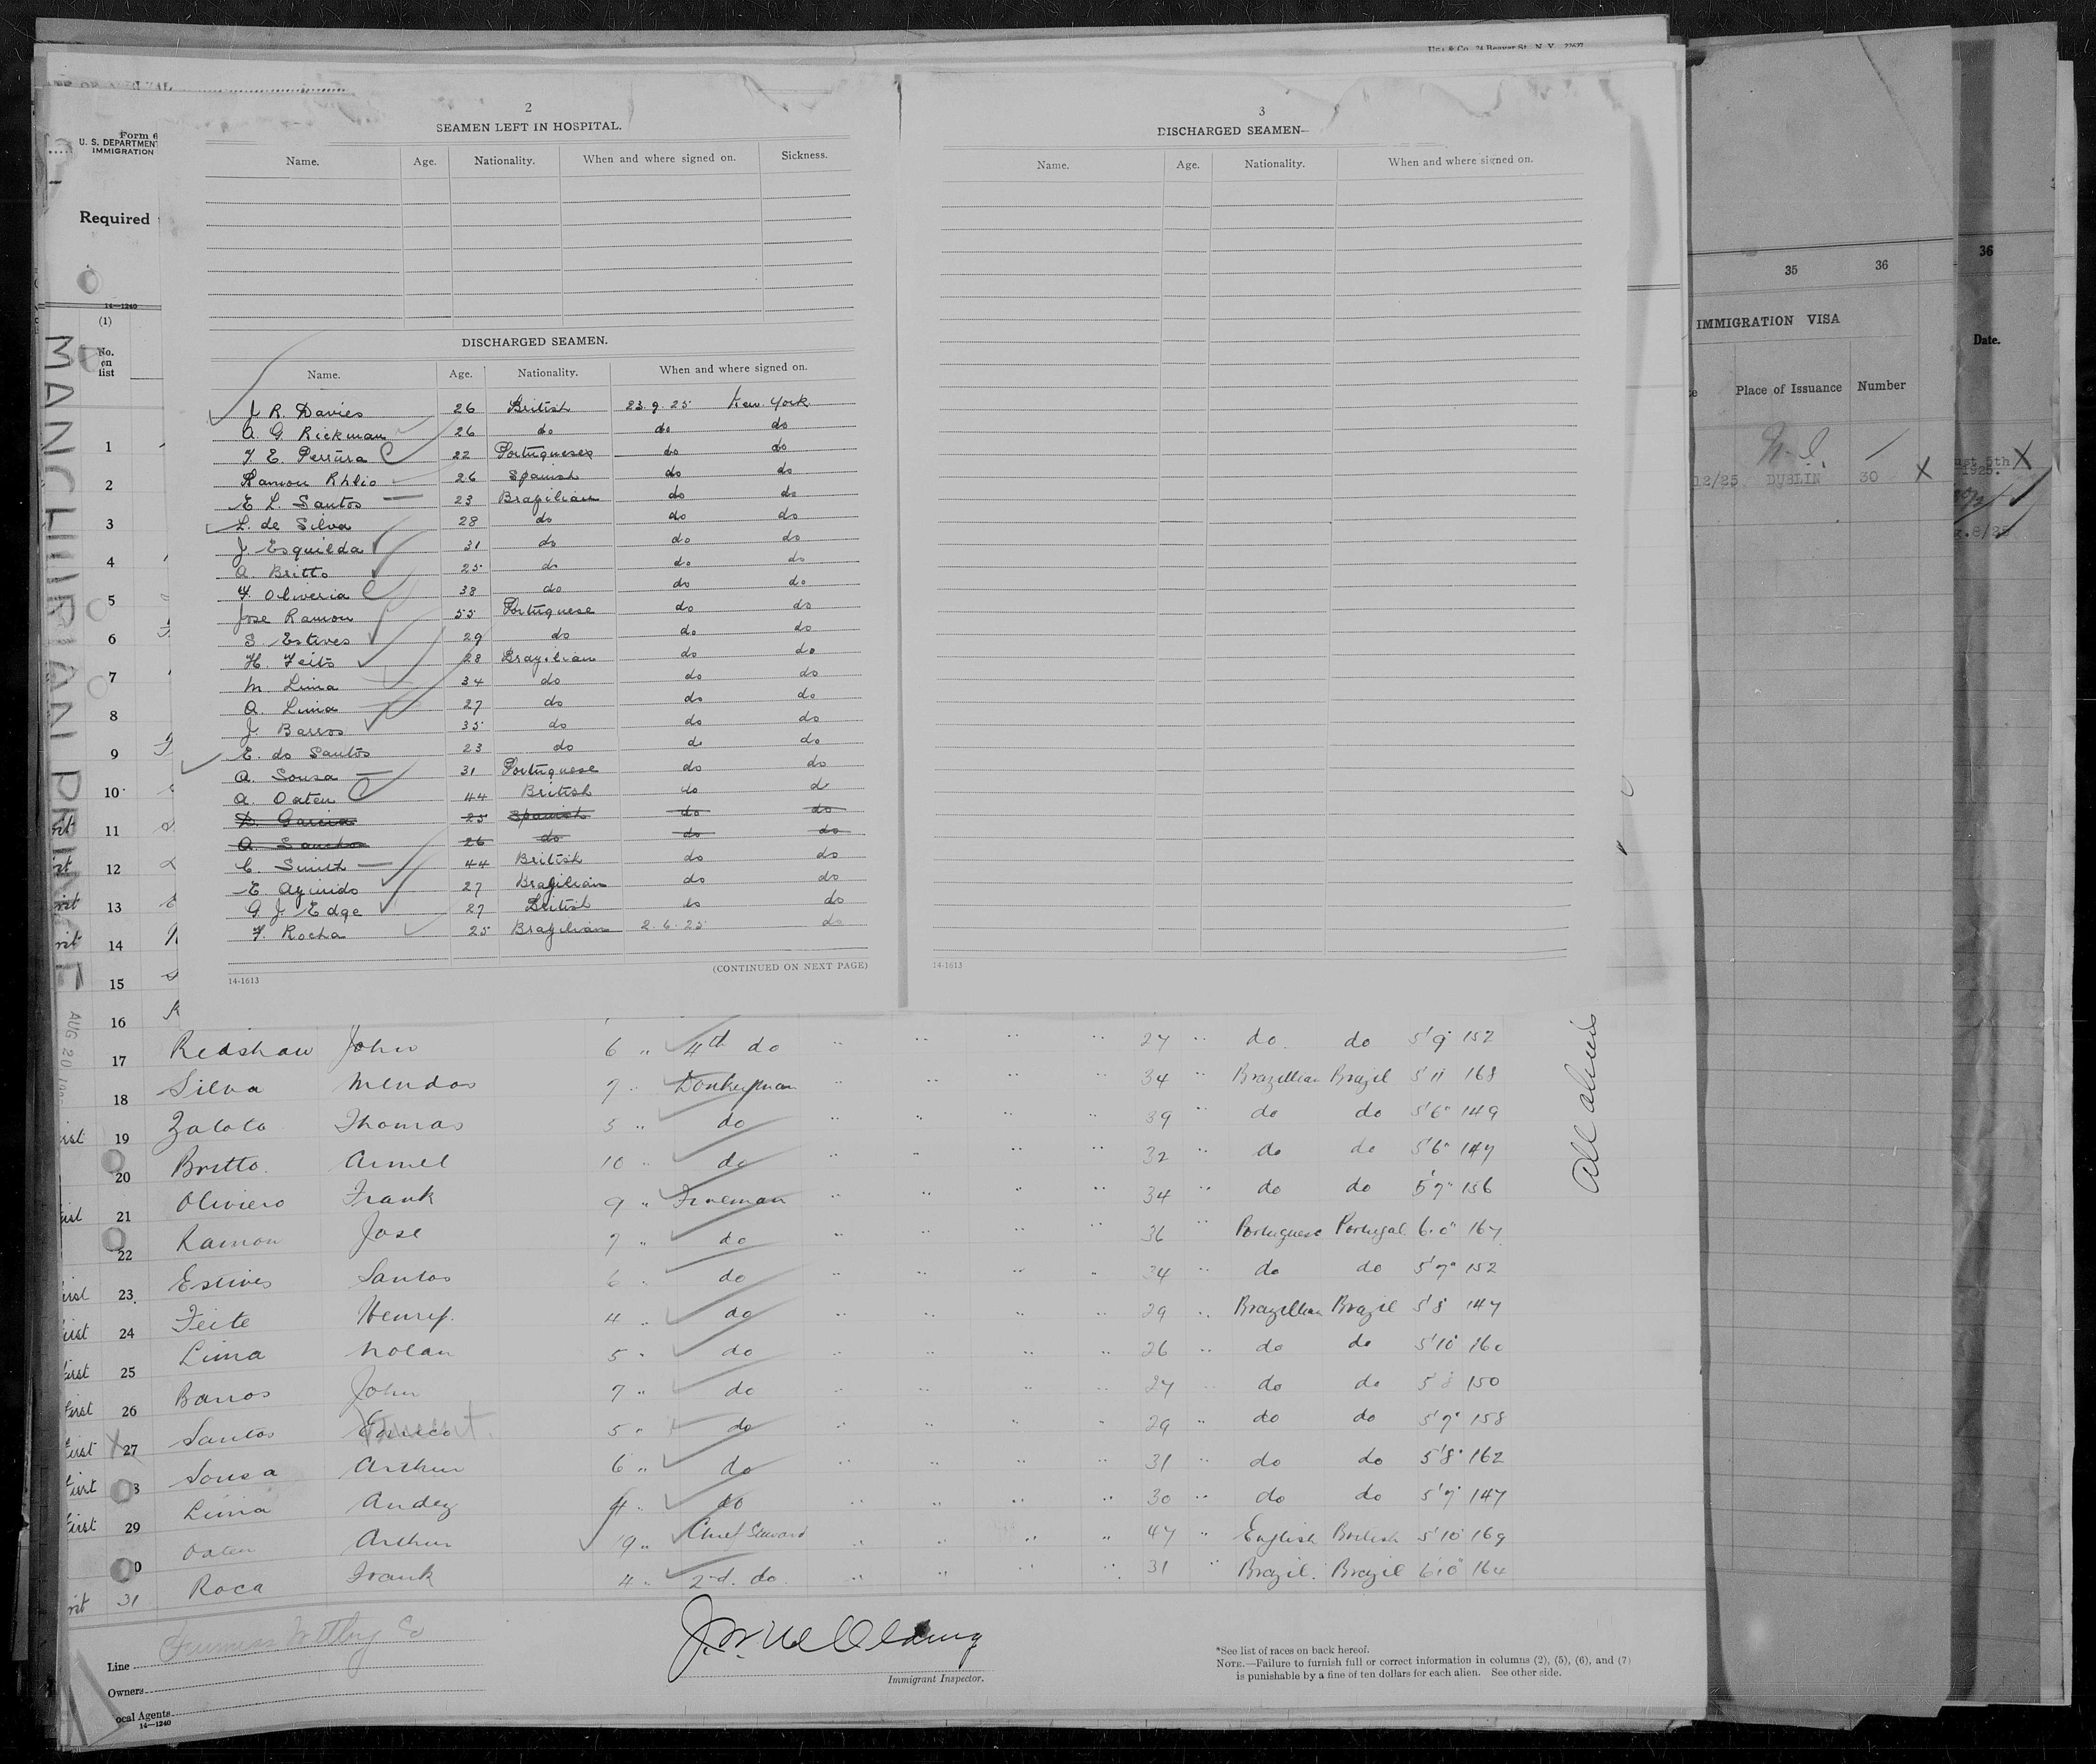 2
SEAMEN LEFT IN HOSPITAL.
Name. Age. Nationality. When and where signed on. Sickness.
DISCHARGED SEAMEN.
Name. Age. Nationality. When and where signed on.
J R. Davies 26 British 23.9.25 New. York
A. G. Rickman 26 do do do
F. E. Perrura 22 Portugueses do do
Ramon Rhlio 26 Spanish do do
E L. Santos 23 Brazilian do do
L. de Silva 28 do do do
J. Esquilda 31 do do do
A. Britto 25 do do do
F. Oliveria 38 do do do
Jose Ramon 55 Portuguese do do
S. Estives 29 do do do
H. Feits 28 Brazilian do do
M. Lima 34 do do do
A. Lima 27 do do do
J. Barros 35 do do do
E. do Santos 23 do do do
A. Sousa 31 Portuguese do do
A. Oaten 44 British do d
D. Garcia 25 Spanish do do
A. Sancho 26 do do do
C. Smith 44 British do do
E. 27 Brazilian do do
G J. Edge 27 British do do
F. Rocha 25 Brazilian 2.6.25 do
(CONTINUED ON NEXT PAGE)
14-1613
3
DISCHARGED SEAMEN
Name. Age. Nationality. When and where signed on.
14-1613
Form 6
U. S. DEPARTMENT
IMMIGRATION
Required
14—1240
(1)
No. on list
MANCHURIAN PRINCE
AUG 20
1
2
3
4
5
6
7
8
9
10
11
12
13
14
15
16
17 Redshaw John 6 " 4th do 27 " do. do 5'9" 152
18 Silva Mendos 7 " Donkeyman 34 " Brazillian Brazil 5'11 168
19 Zalola Thomas 5 " do 39 " do do 5'6" 149
20 Britto. Armel 10 " do 32 " do do 5'6" 147
21 Oliviero Frank 9 " Fireman 34 " do do 5'7" 156
22 Ramon Jose 7 " do 36 " Portuguese Portugal. 6.0" 167
23 Estives Santos 6 " do 34 " do do 5'7" 152
24 Feite Henry. 4 " do 29 " Brazillian Brazil 5'8 147
25 Lima Nolan 5 " do 26 " do do 5'10 160
26 Barros John 7 " do 27 " do do 5'8 150
27 Santos Enrico 5 " do 29 " do do 5'7" 158
Sousa Arthur 6 " do 31 " do do 5'8" 162
29 Lima Andez 4 " do 30 " do do 5'7" 147
Oaten Arthur 19 " Chief Steward 47 " English British 5'10 169
31 Roca Frank 4 " 2nd. do. 31 " Brazil. Brazil 6'0" 164
All aliens
Line Furness Withy Co
Owners
ocal Agents
14—1240
Immigrant Inspector.
*See list of races on back hereof.
NOTE.—Failure to furnish full or correct information in columns (2), (5), (6), and (7)
is punishable by a fine of ten dollars for each alien. See other side.
35 36
IMMIGRATION VISA
Place of Issuance Number
12/25 DUBLIN 30 X
36
Date.
ust 5th X
1925.